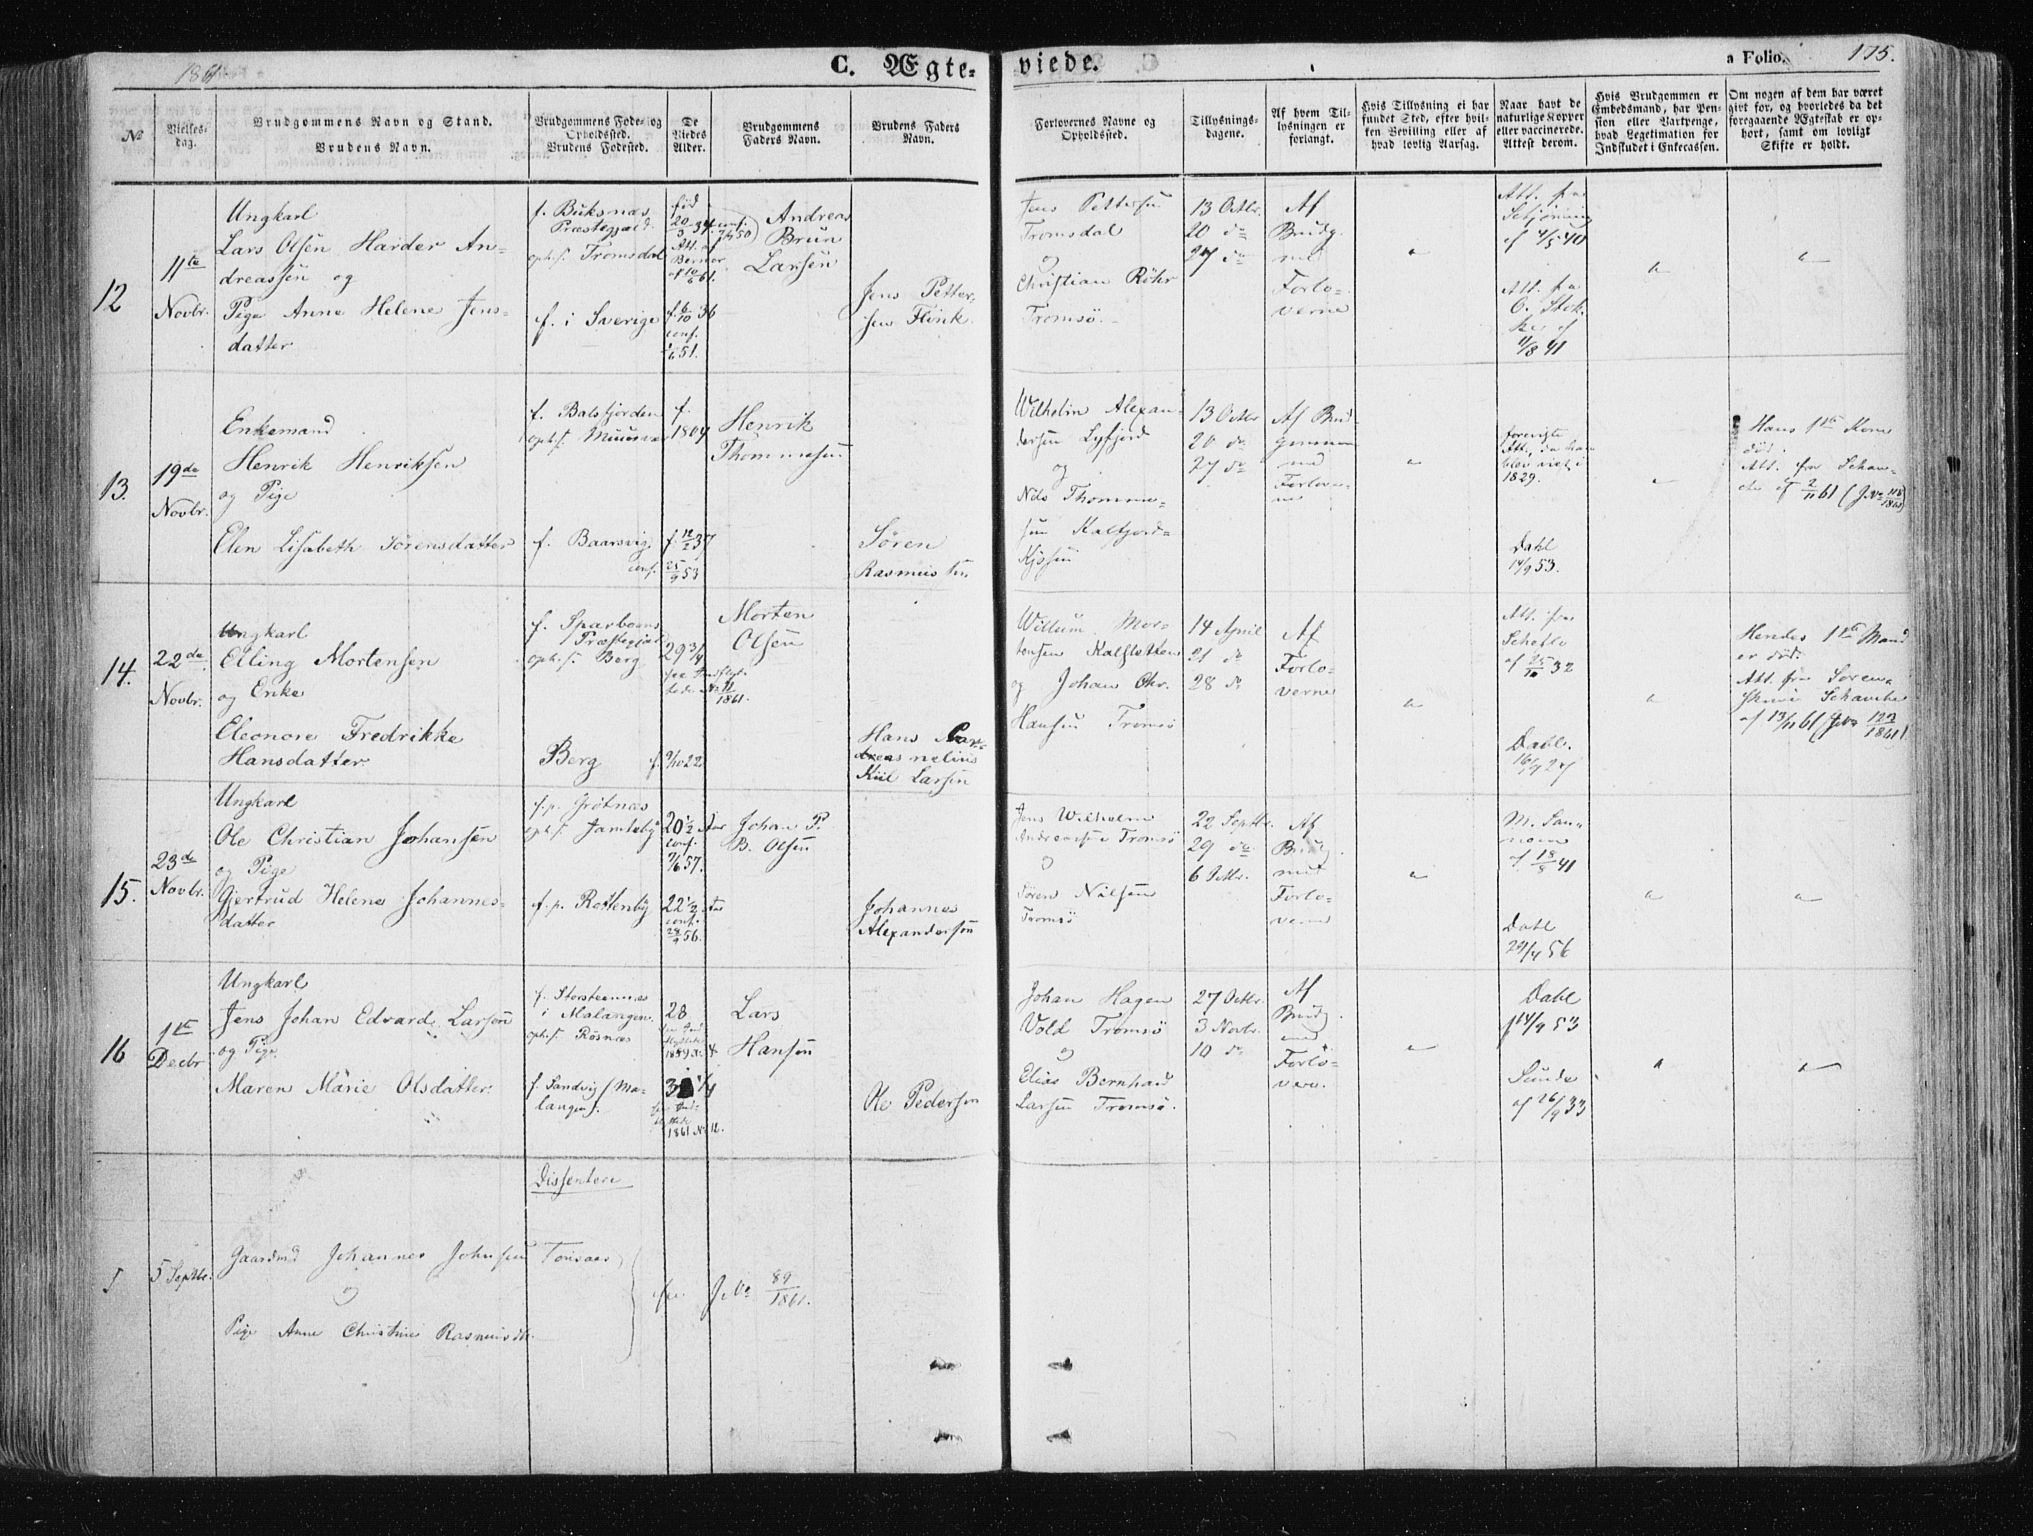 1861.
C. Ægte-
viede.
a Folio.
175.
No
Vielses-
dag.
Brudgommens Navn og Stand.
Brudens Navn.
Brudgommens Føde- og
Opholdssted.
Brudens Fødested.
De
Viedes
Alder.
Brudgommens
Faders Navn.
Brudens Faders
Navn.
Forlovernes Navne og
Opholdssted.
Tillysnings-
dagene.
Af hvem Til-
lysningen er
forlangt.
Hvis Tillysning ei har
fundet Sted, efter hvil-
ken Bevilling eller af
hvad lovlig Aarsag.
Naar havt de
naturlige Kopper
eller vaccinerede.
Attest derom.
Hvis Brudgommen er
Embedsmand, har Pen-
sion eller Vartpenge,
hvad Legitimation for
Indskudet i Enkecassen.
Om nogen af dem har været
givt for, og hvorledes da det
foregaaende Ægteskab er op-
hørt, samt om lovligt
Skifte er holdt.
12
11te
Novbr.
Ungkarl
Lars Olsen Harder An-
dreassen og
Pige Anne Helene Jens-
datter
f. Buksnæs
Præstegjæld.
oph.s. Tromsdal
f. i Sverige
født
20/3 34
Att. af
Berner
af 10/6 61.
f. 6/10 36
conf.
1/6 51.
Andreas
Brun
Larsen
Jens Petter-
sen Flink.
Jens Pettersen
Tromsdal
og
Christian Röhr
Tromsø.
13 Octbr.
20 do
27 do
Af
Brudg.
med
Forlo-
verne
"
Att. fra
af 4/5 40
Att. fra
af
11/8 41
"
"
13.
19de
Novbr.
Enkemand
Henrik Henriksen
og Pige
Elen Lisabeth Sørensdatter
f. Balsfjorden
oph.s. Muusvær
f. Baarsvig.
conf.
f.
1804
f. 12/2 37
25/9 53
Henrik
Thommesen
Søren
Rasmussen
Wilhelm Alexan-
dersen Lyfjord
og
Nils Thomme-
sen Kalfjord-
13 Octbr
20 do
27 do
Af Brud-
gommen
med
Forlover-
ne
"
forevigte
Att., da han
blev viet i
1829.
Dahl
14/9 53.
"
Hans 1ste Kone
død.
Att. fra Schan-
che af 2/11 61 (J.No 118/1861)
14.
22de
Novbr.
Ungkarl
Elling Mortensen
og Enke
Eleonore Fredrikke
Hansdatter
f. Sparboens
Præstegjæld
oph.s. Berg
Berg
29 3/4
1861.
f. 9/10 22
Morten
Olsen
Hans
nelius
Kiil Larsen
Willum Mor-
tensen Kalsletten
og Johan Chr.
Hansen Tromsø
14 April
21 do
28 do
Af
Forlo-
verne
"
Att. fra
af 25/10 32
Dahl.
16/9 27
"
Hendes 1ste Mand
er død.
Att. fra Soren-
skriver Schanche
af 13/11 61 (J.No 122/1861)
15.
23de
Novbr.
Ungkarl
Ole Christian Johansen
og Pige
Gjertrud Helene Johannes-
datter
f.p. Grøtnæs
oph.s. Jamteby
f.p. Rottenby
20 1/2 Aar
conf.
7/6 57.
22 1/2 Aar
conf.
28/9 56.
Johan P.
B. Olsen
Johannes
Alexandersen
Jens Wilhelm
Andreassen Tromsø
og
Søren Nilsen
Tromsø
22 Septbr.
29 do
6 Octbr.
Af
Brudg.
med
Forlo-
verne
"
af 18/8 41
Dahl
29/4 56
"
"
16
1ste
Decbr
Ungkarl
Jens Johan Edvard Larsen
og Pige
Maren Marie Olsdatter.
f. Storsteennæs
i Malangen.
oph.s. Røsnæs
f. Sandvig (Ma-
langen).
28
1861 No 12.
Lars
Hansen
Ole Pedersen
Johan Hagen
Vold Tromsø
og
Elias Bernhard
Larsen Tromsø.
27 Octbr.
3 Novbr.
10 do
Af
Brudg.
med
Forlo-
vere.
"
Dahl
14/9 53
Sunde
af 26/9 33
"
"
Dissentere
5 Septbr.
Gaardmd Johannes Johnsen
og
Pige Anne Christine Rasmusdtr.
Tonsaas
see J.No 89/1861.